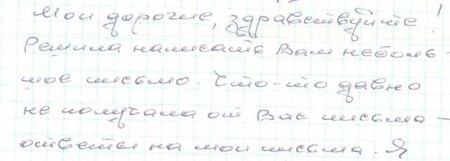 Мои дорогие, здравствуйте!
Решила написать Вам неболь-
шое письмо. Что-то давно
не получала от Вас письма -
ответы на мои письма. Я